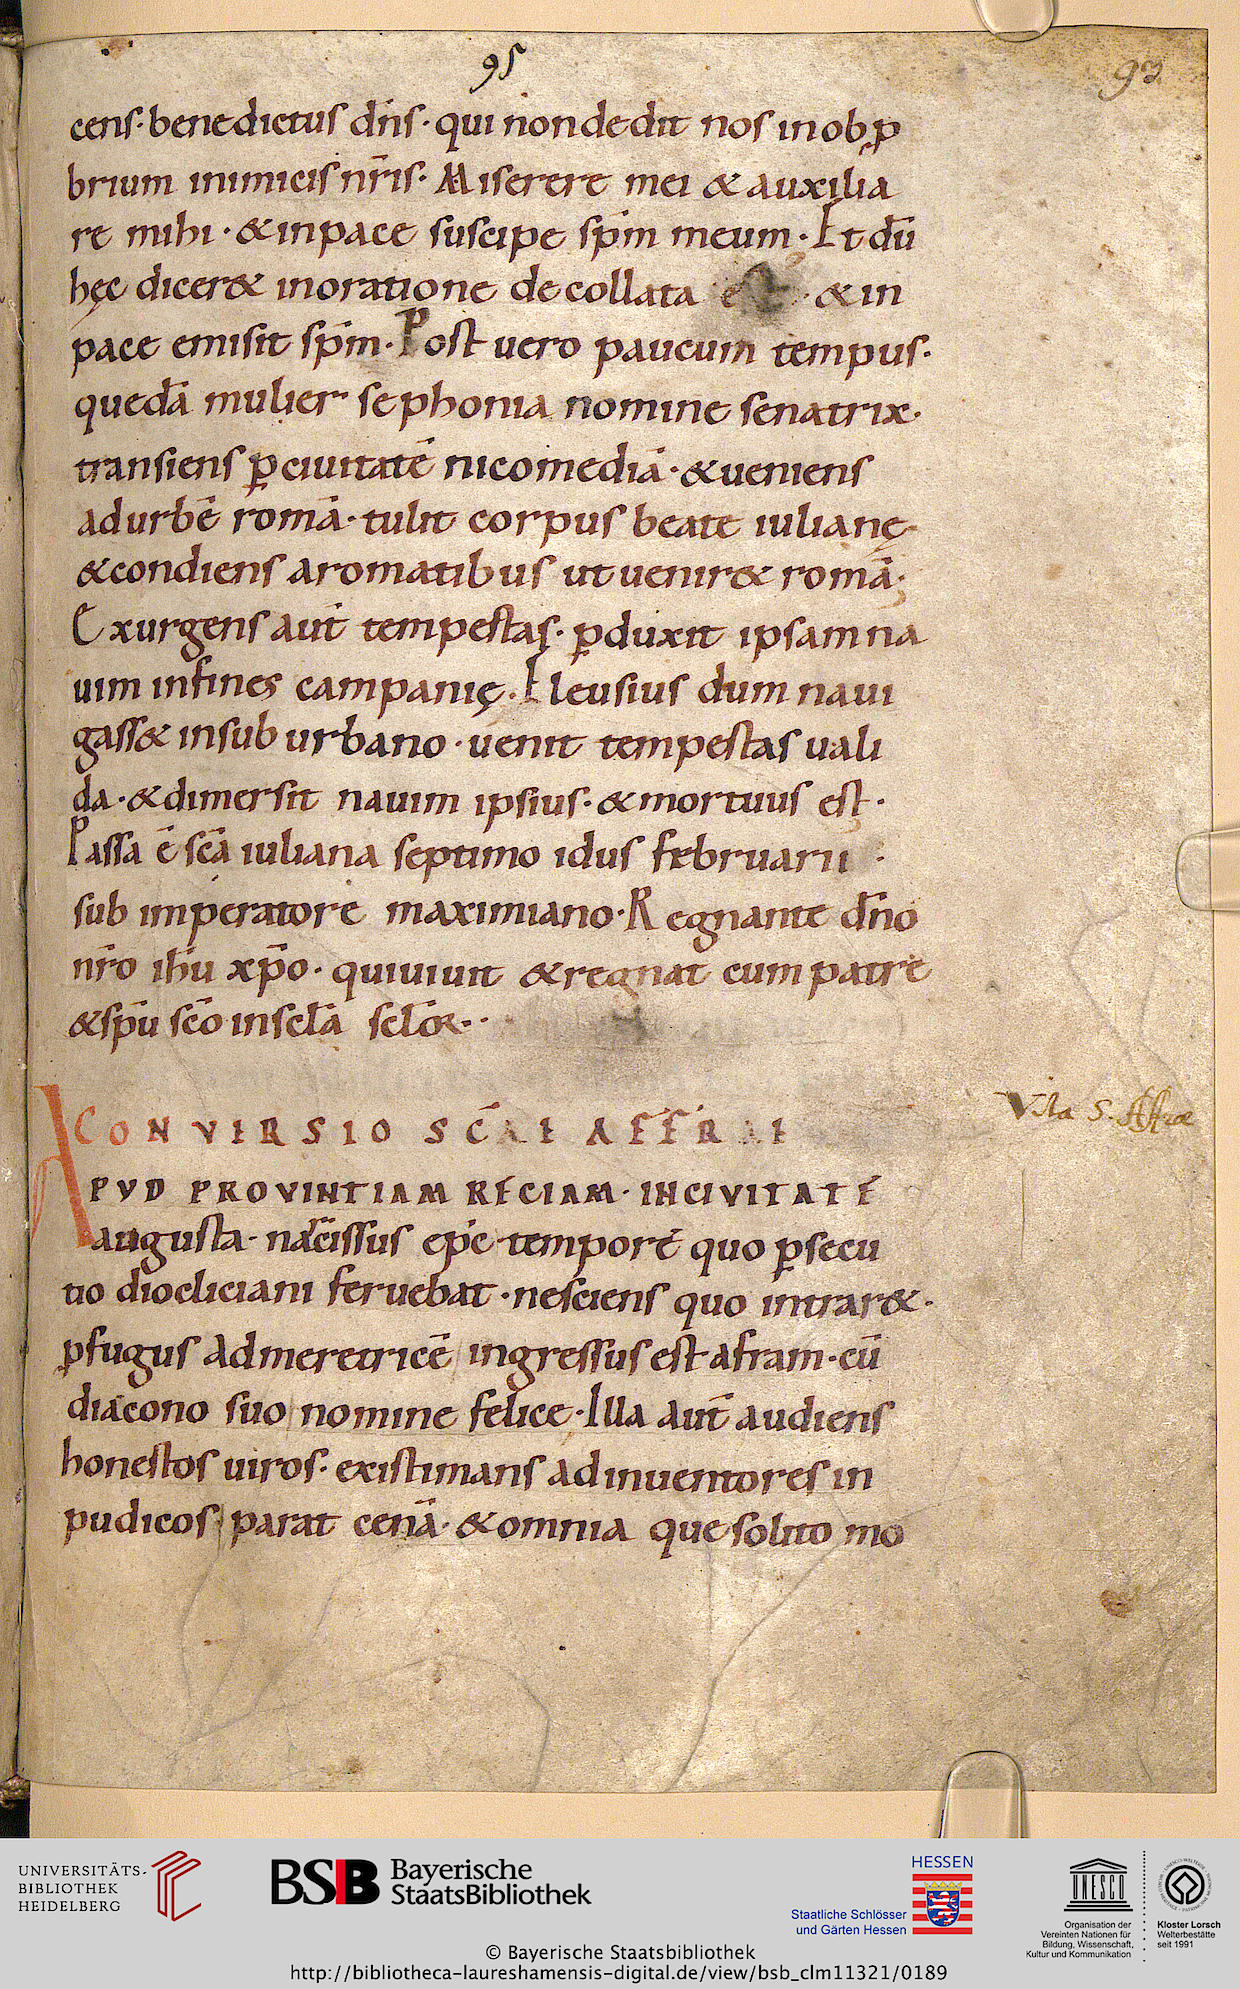 95
93
cens· benedictus dn̄s· qui non dedit nos in obꝓ
brium inimicis nr̄is· Miserere mei & auxilia
re mihi· & in pace suscipe sp̄m meum· Et dū
hęc dicer& in oratione decollata est· & in
pace emisit sp̄m· Post uero paucum tempus·
quedā mulier sephonia nomine senatrix·
transiens ꝑ ciuitatē nicomediā· & ueniens
ad urbē romā· tulit corpus beate iulianę
& condiens aromatibus ut uenir& romā·
Exurgens aut̄ tempestas· ꝑduxit ipsam na
uim in fines campanię· Eleusius dum naui
gass& in suburbano· uenit tempestas uali
da· & dimersit nauim ipsius· & mortuus est·
Passa ē sc̄a iuliana septimo idus februarii·
sub imperatore maximiano· Regnante dn̄o
nr̄o ih̄u xp̄o· qui uiuit & regnat cum patre
& sp̄u sc̄o in sc̄la sc̄lor·
CONVERSIO SC̄AE AFFRAE
Vita S. Affrae
APVD PROVINTIAM RECIAM· IN CIVITATE
augusta· narcissus ep̄c tempore quo ꝑsecu
tio diocliciani feruebat· nesciens quo intrar&·
ꝓfugus ad meretricē ingressus est afram· cū
diacono suo nomine felice· Illa aut̄ audiens
honestos uiros· existimans ad inuentores in
pudicos parat cenā· & omnia que solito mo
UNIVERSITÄTS-
BIBLIOTHEK
HEIDELBERG
BSB Bayerische
StaatsBibliothek
HESSEN
Staatliche Schlösser
und Gärten Hessen
UNESCO
Organisation der
Vereinten Nationen für
Bildung, Wissenschaft,
Kultur und Kommunikation
Kloster Lorsch
Welterbestätte
seit 1991
© Bayerische Staatsbibliothek
http://bibliotheca-laureshamensis-digital.de/view/bsb_clm11321/0189